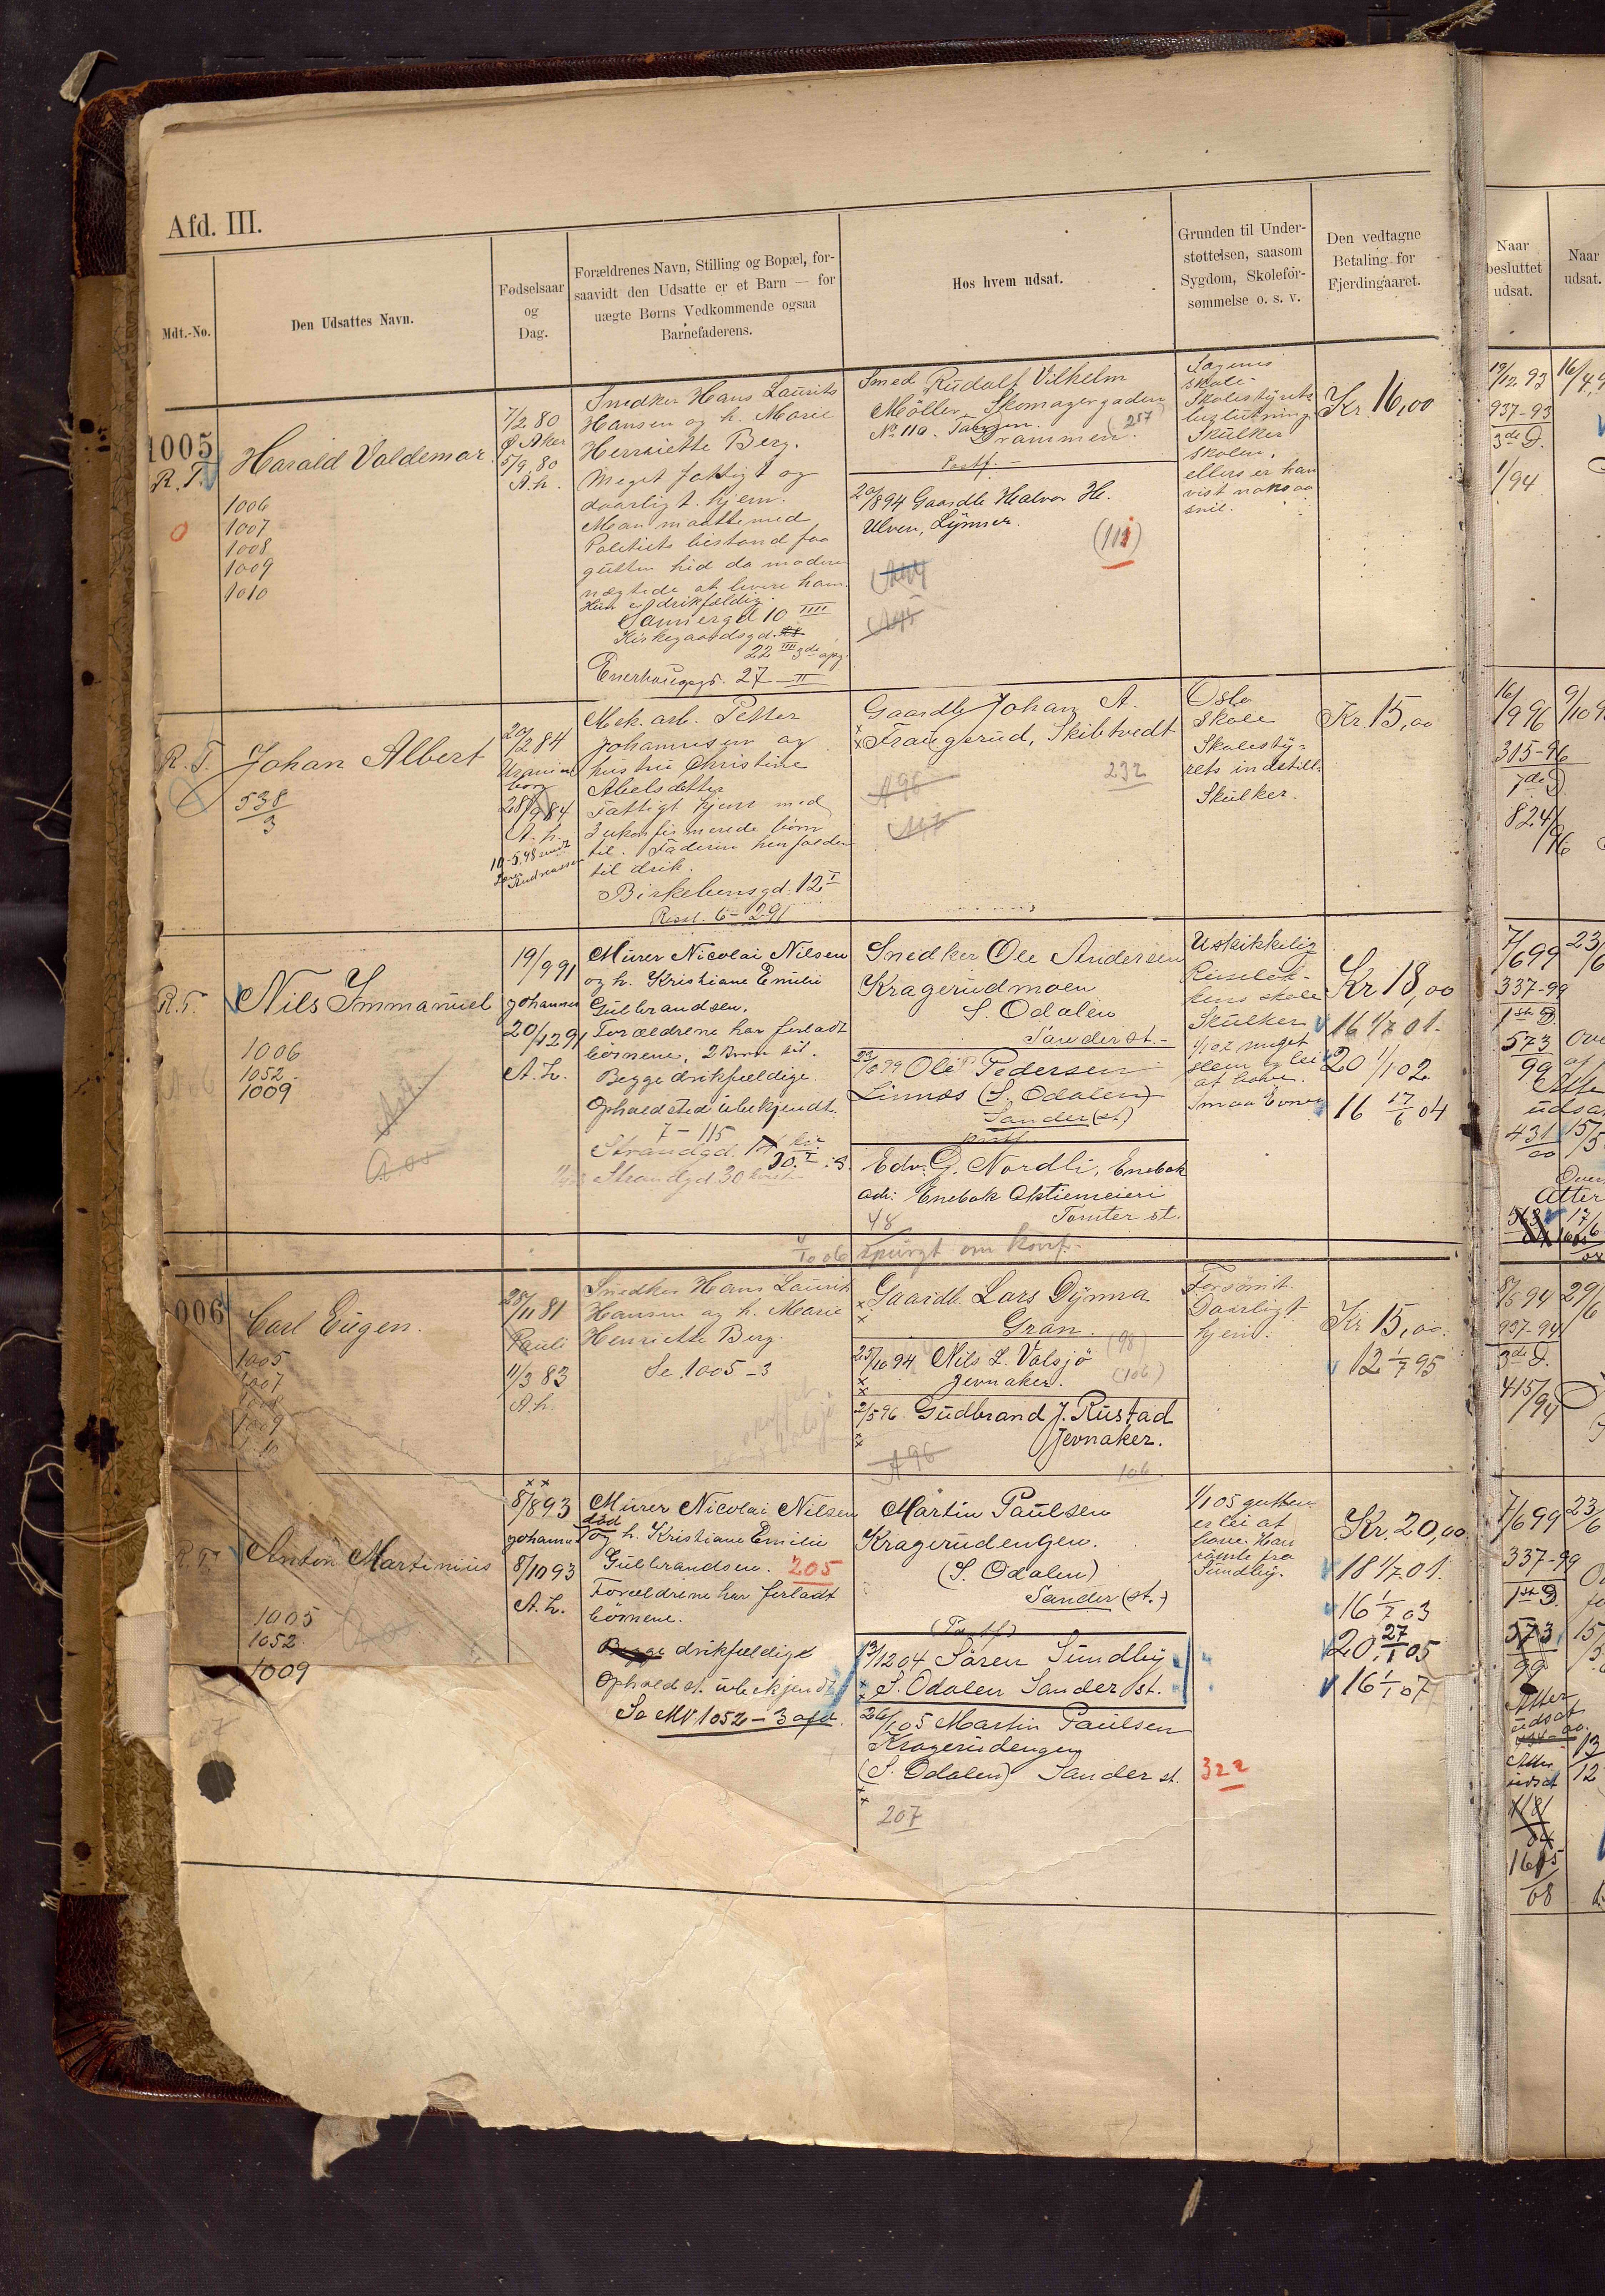 Afd. III.
Mdt.-No.
Den Udsattes Navn.
Fødselsaar
og
Dag.
Forældrenes Navn, Stilling og Bopæl, for-
saavidt den Udsatte er et Barn — for
uægte Børns Vedkommende ogsaa
Barnefaderens.
Hos hvem udsat.
Grunden til Under-
støttelsen, saasom
Sygdom, Skolefor-
sømmelse o. s. v.
Den vedtagne
Betaling for
Fjerdingaaret.
Naar
besluttet
udsat.
Naar
udsat.
1005
R. T.
Harald Valdemar
1006
1007
1008
1009
1010
7/2 80
Ø Aker
5/9 80
A. h.
Snedker Hans Laurits
Hansen og h. Marie
Henriette Berg.
Meget fattigt og
daarligt hjem.
Man maatte med
Politiets bistand faa
gutten hid da moderen
nægtede at levere ham.
Hun er drikfældig.
Sannergd 10 IIII
Kirkegaardsgd.
22 III 3de opg.
Enerhaugsgd. 27 - II
Smed Rudolf Vilhelm
Möller, Skomagergaden
No 110. Tangen.
Drammen. (257)
Portf.
20/8 94 Gaardb Halvor H.
Ulven, Lymner.
(111)
Sagenes
skole
Skolestyrets
beslutning
Skulker
skolen,
ellers er han
vist nok saa
snil.
Kr. 16,00
19/12 93
937-93
3de D.
1/94
R. T.
Johan Albert
538
3
20/2 84
Uranien
borg
28/9 84
A. h.
Mek. arb. Petter
Johannesen og
hustru Christine
Abelsdatter
Fattigt hjem med
3 ukonfirmerede børn
til. Faderen henfalden
til drik.
Birkebensgd. 12 I
Resol. 6-291
Gaardb Johan A.
Fraugerud, Skibtvedt
A 96
232
Oslo
Skole
Skolesty-
rets indstill.
Skulker.
Kr. 15,00
16/9 96
315-96
7de D.
824/96
R. T.
Nils Immanuel
1006
1052
1009
19/9 91
Johannes
20/12 91
A. h.
Murer Nicolai Nilsen
og h. Kristiane Emilie
Gulbrandsen.
Forældrene har forladt
børnene, 2 børn til.
Begge drikfældige.
Opholdsted ubekjendt.
7-115
Strandgd.
Strandgd 30
Snedker Ole Andersen
Kragerudmoen
S. Odalen
Sander st.
23/6 99 Ole Pedersen
Linnæs (S. Odalen)
Sander (st.)
Edv. G. Nordli, Enebak
adr: Enebak Aktiemeieri
Tomter st.
48
spurgt om konf.
Uskikkelig
Ruseløk-
kens skole
Skulker
1/1 02 meget
slem og lei
at have.
Smaa Evner
Kr 18,00
16 1/7 01.
20 1/1 02
16 17/6 04
7/6 99
337-99
1ste D.
573
99
431
00
1006
Carl Eugen.
1005
1007
1008
1009
28/11 81
Pauli
11/3 83
A. h.
Snedker Hans Laurits
Hansen og h. Marie
Henriette Berg.
Se 1005-3
Gaardb. Lars Dynna
Gran.
(98)
25/10 94 Nils L. Valsjö
Jevnaker. (106)
2/5 96 Gudbrand J. Rustad
Jevnaker.
A 96
106
Forsömt.
Daarligt
hjem.
Kr 15,00.
12 1/7 95
8/5 94
937-94
3de D.
415/94
R. T.
Anton Martinius
1005
1052
1009
8/8 93
Johannes
8/10 93
A. h.
Murer Nicolai Nilsen
død
og h. Kristiane Emilie
Gulbrandsen. 205
Forældrene har forladt
børnene.
Begge drikfældige
Opholdst. ubekjendt
Se M№ 1052-3 afd.
Martin Paulsen
Kragerudengen.
(S. Odalen)
Sander (st.)
13/12 04 Sören Sundby
S. Odalen Sander st.
26/1 05 Martin Paulsen
Kragerudengen
(S. Odalen) Sander st.
207
1/1 05 gutten
er lei at
have. Han
rømte fra
Sundby.
322
Kr. 20,00
18 1/7 01.
16 1/7 03
20 27/1 05
16 1/1 07
7/6 99
337-99
1ste D.
573
99
Atter
udsat
Atter
udsat
1605
08